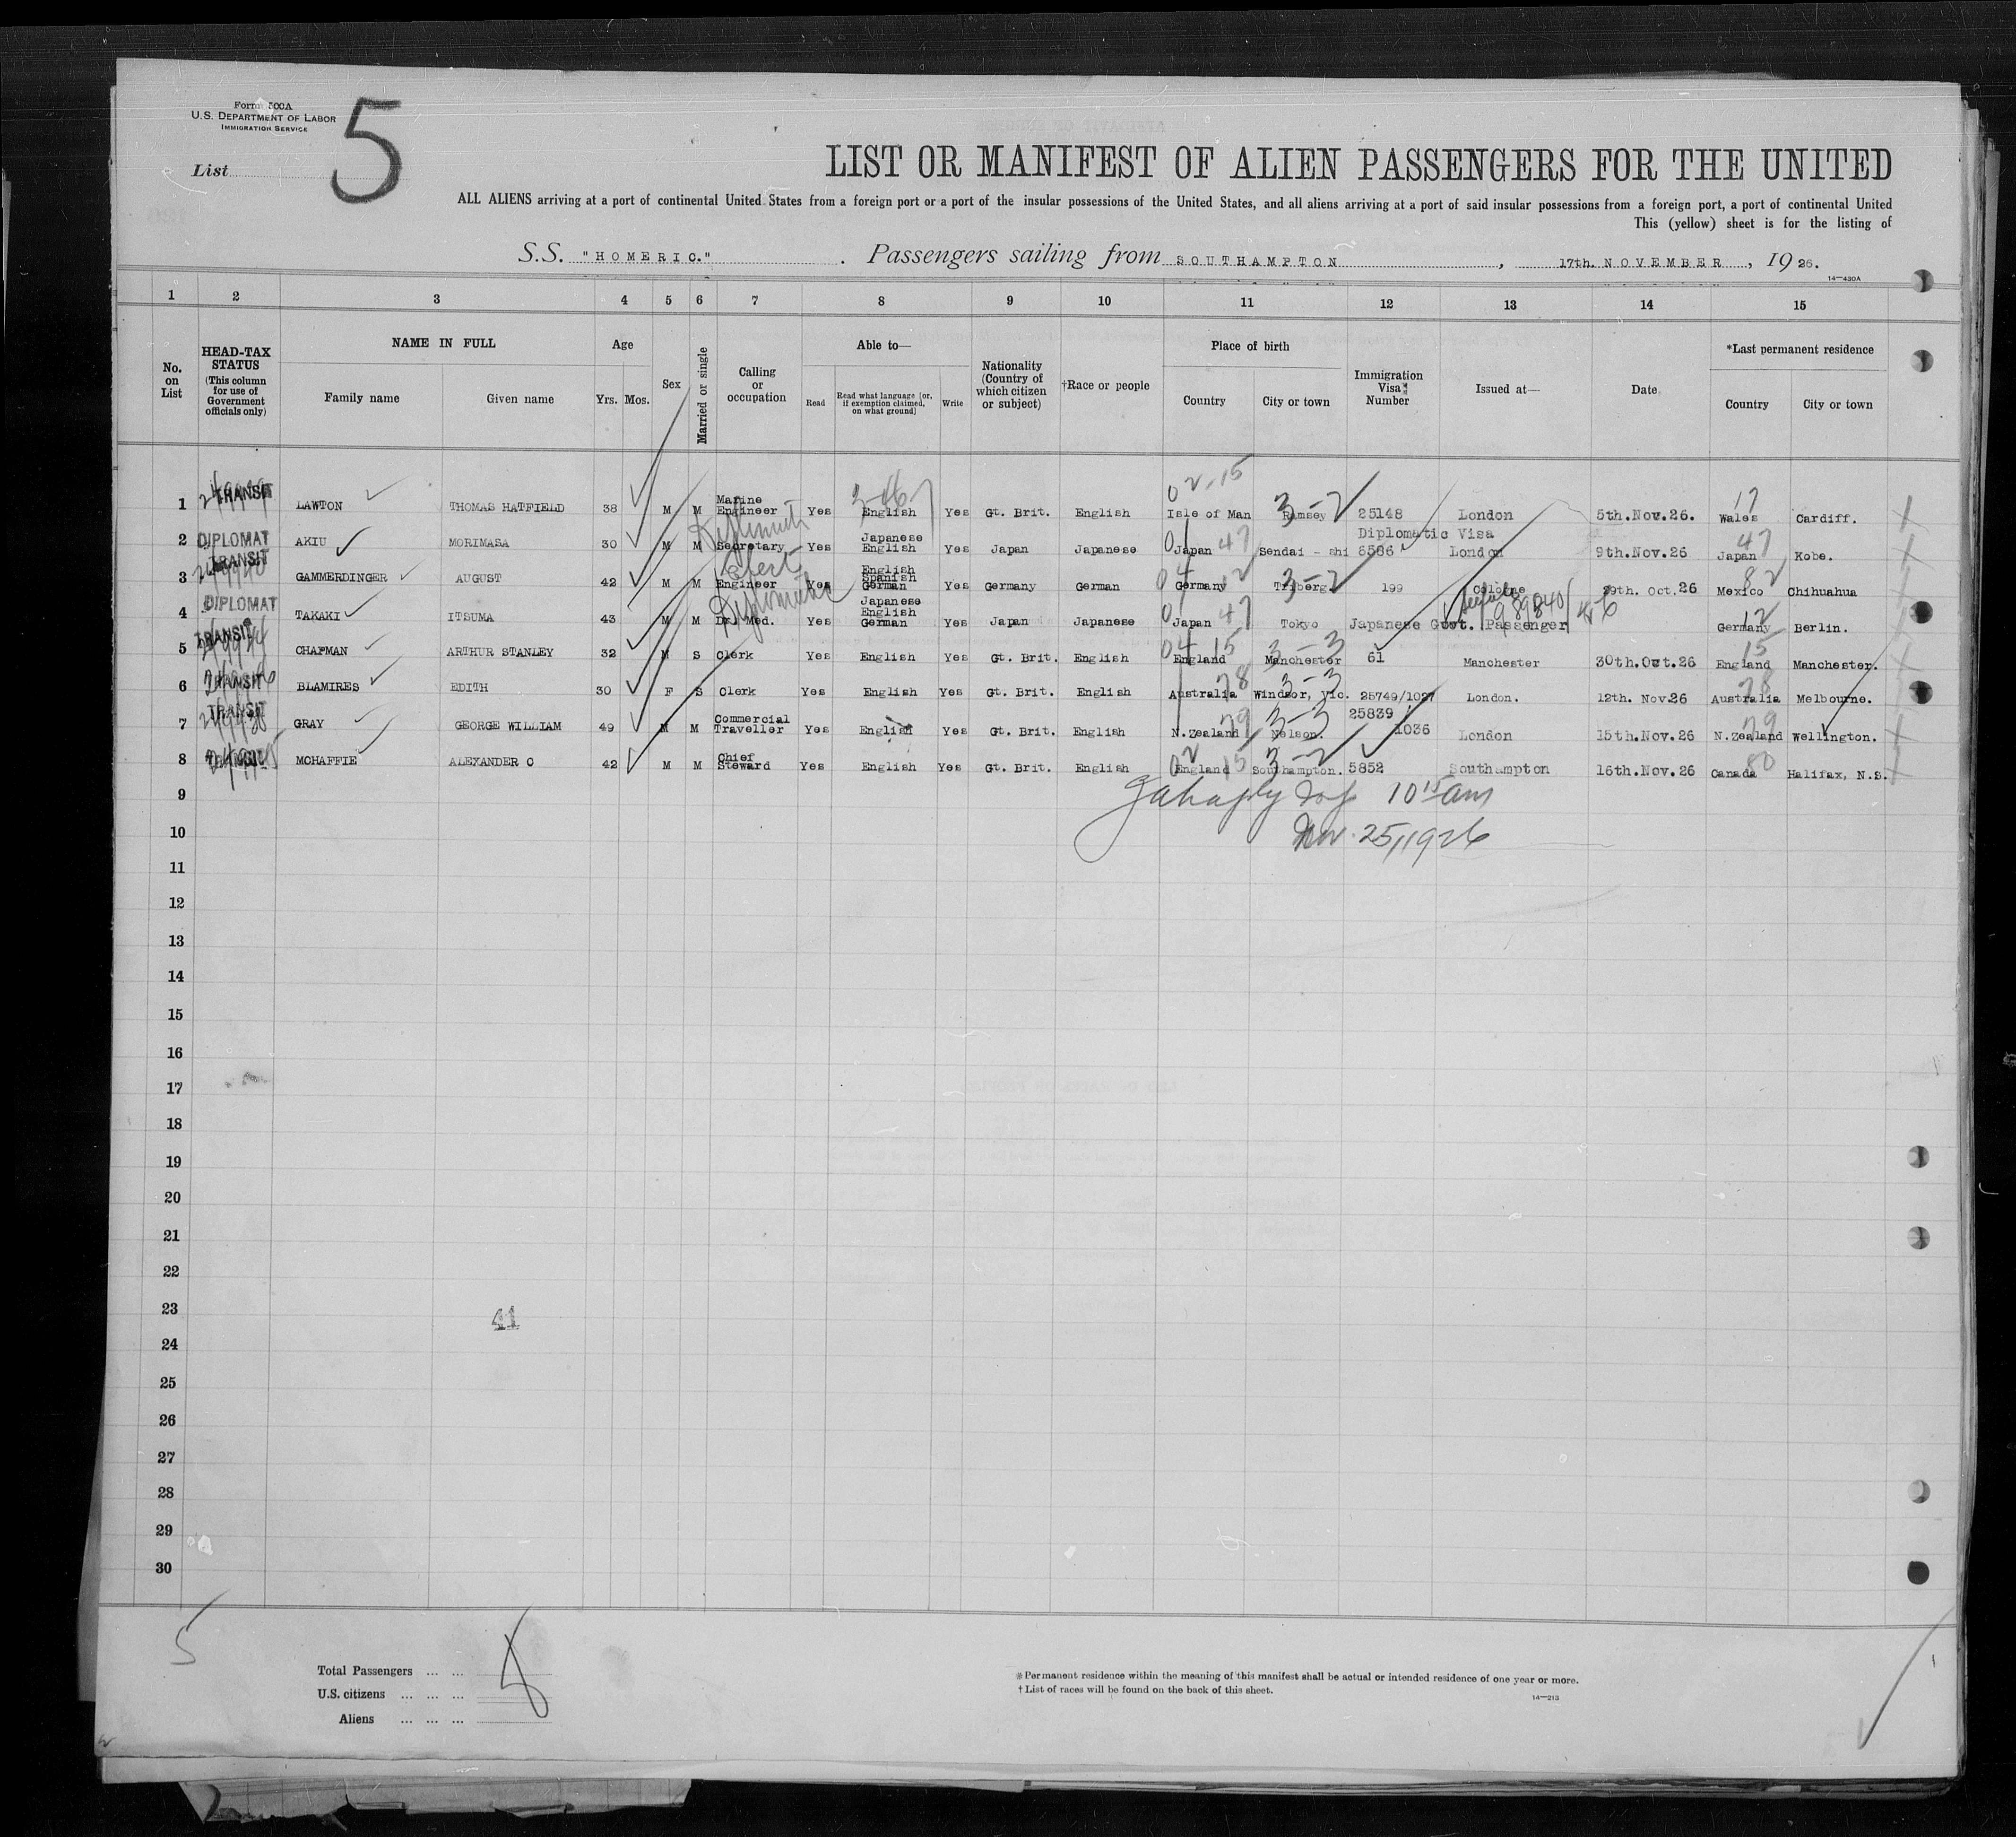 Form 500A
U.S. DEPARTMENT OF LABOR
IMMIGRATION SERVICE
List 5
LIST OR MANIFEST OF ALIEN PASSENGERS FOR THE UNITED
ALL ALIENS arriving at a port of continental United States from a foreign port or a port of the insular possessions of the United States, and all aliens arriving at a port of said insular possessions from a foreign port, a port of continental United
This (yellow) sheet is for the listing of
S.S. "HOMERIC." . Passengers sailing from SOUTHAMPTON , 17th. NOVEMBER , 19 26.
14—430A
1 2 3 4 5 6 7 8 9 10 11 12 13 14 15
No. on List
HEAD-TAX STATUS (This column for use of Government officials only)
NAME IN FULL
Family name
Given name
Age
Yrs. Mos.
Sex
Married or single
Calling or occupation
Able to—
Read
Read what language [or, if exemption claimed, on what ground]
Write
Nationality (Country of which citizen or subject)
†Race or people
Place of birth
Country
City or town
Immigration Visa Number
Issued at—
Date
*Last permanent residence
Country
City or town
02-15 17
1 TRANSIT LAWTON THOMAS HATFIELD 38 M M Marine Engineer Yes English Yes Gt. Brit. English Isle of Man Ramsey 3-2 25148 London 5th.Nov.26. Wales Cardiff.
2 DIPLOMAT AKIU MORIMASA 30 M M Secretary Yes Japanese English Yes Japan Japanese Japan 47 Sendai - shi Diplomatic Visa 8586 London 9th.Nov.26 Japan 47 Kobe.
3 TRANSIT GAMMERDINGER AUGUST 42 M M Engineer Yes English Spanish German Yes Germany German 04 Germany 12 Triberg 3-2 199 Cologne 29th. Oct.26 Mexico 82 Chihuahua
4 DIPLOMAT TAKAKI ITSUMA 43 M M Dr. Med. Yes Japanese English German Yes Japan Japanese Japan 47 Tokyo Japanese Govt. Passenger Germany 12 Berlin.
5 TRANSIT CHAPMAN ARTHUR STANLEY 32 M S Clerk Yes English Yes Gt. Brit. English 04 England 15 Manchester 3-3 61 Manchester 30th.Oct.26 England 15 Manchester.
6 TRANSIT BLAMIRES EDITH 30 F S Clerk Yes English Yes Gt. Brit. English Australia 78 Windsor, Vic. 3-3 25749/1027 London. 12th. Nov.26 Australia 78 Melbourne.
7 TRANSIT GRAY GEORGE WILLIAM 49 M M Commercial Traveller Yes English Yes Gt. Brit. English N.Zealand 79 Nelson. 3-3 25839 1036 London 15th.Nov.26 N.Zealand 79 Wellington.
8 MCHAFFIE ALEXANDER C 42 M M Chief Steward Yes English Yes Gt. Brit. English 02 England 15 Southampton. 3-2 5852 Southampton 16th.Nov.26 Canada 80 Halifax, N.S.
9 10 15 am
10 Nov. 25, 1926
11
12
13
14
15
16
17
18
19
20
21
22
23 41
24
25
26
27
28
29
30
5
Total Passengers ... ... 8
U.S. citizens ... ... ...
Aliens ... ... ...
*Permanent residence within the meaning of this manifest shall be actual or intended residence of one year or more.
†List of races will be found on the back of this sheet.
14—213